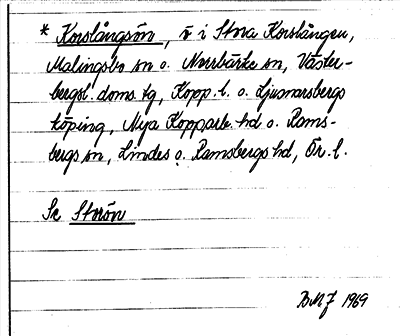 * Korslångsön, ö i Stora Korslången,
Malingsbo sn o. Norrbärke sn, Väster-
bergsl. doms. tg, Kopp. l. o. Ljusnarsbergs
köping, Nya Kopparb. hd o. Rams-
bergs sn, Lindes o. Ramsbergs hd, Ör. l.
Se Storön
BMJ 1969